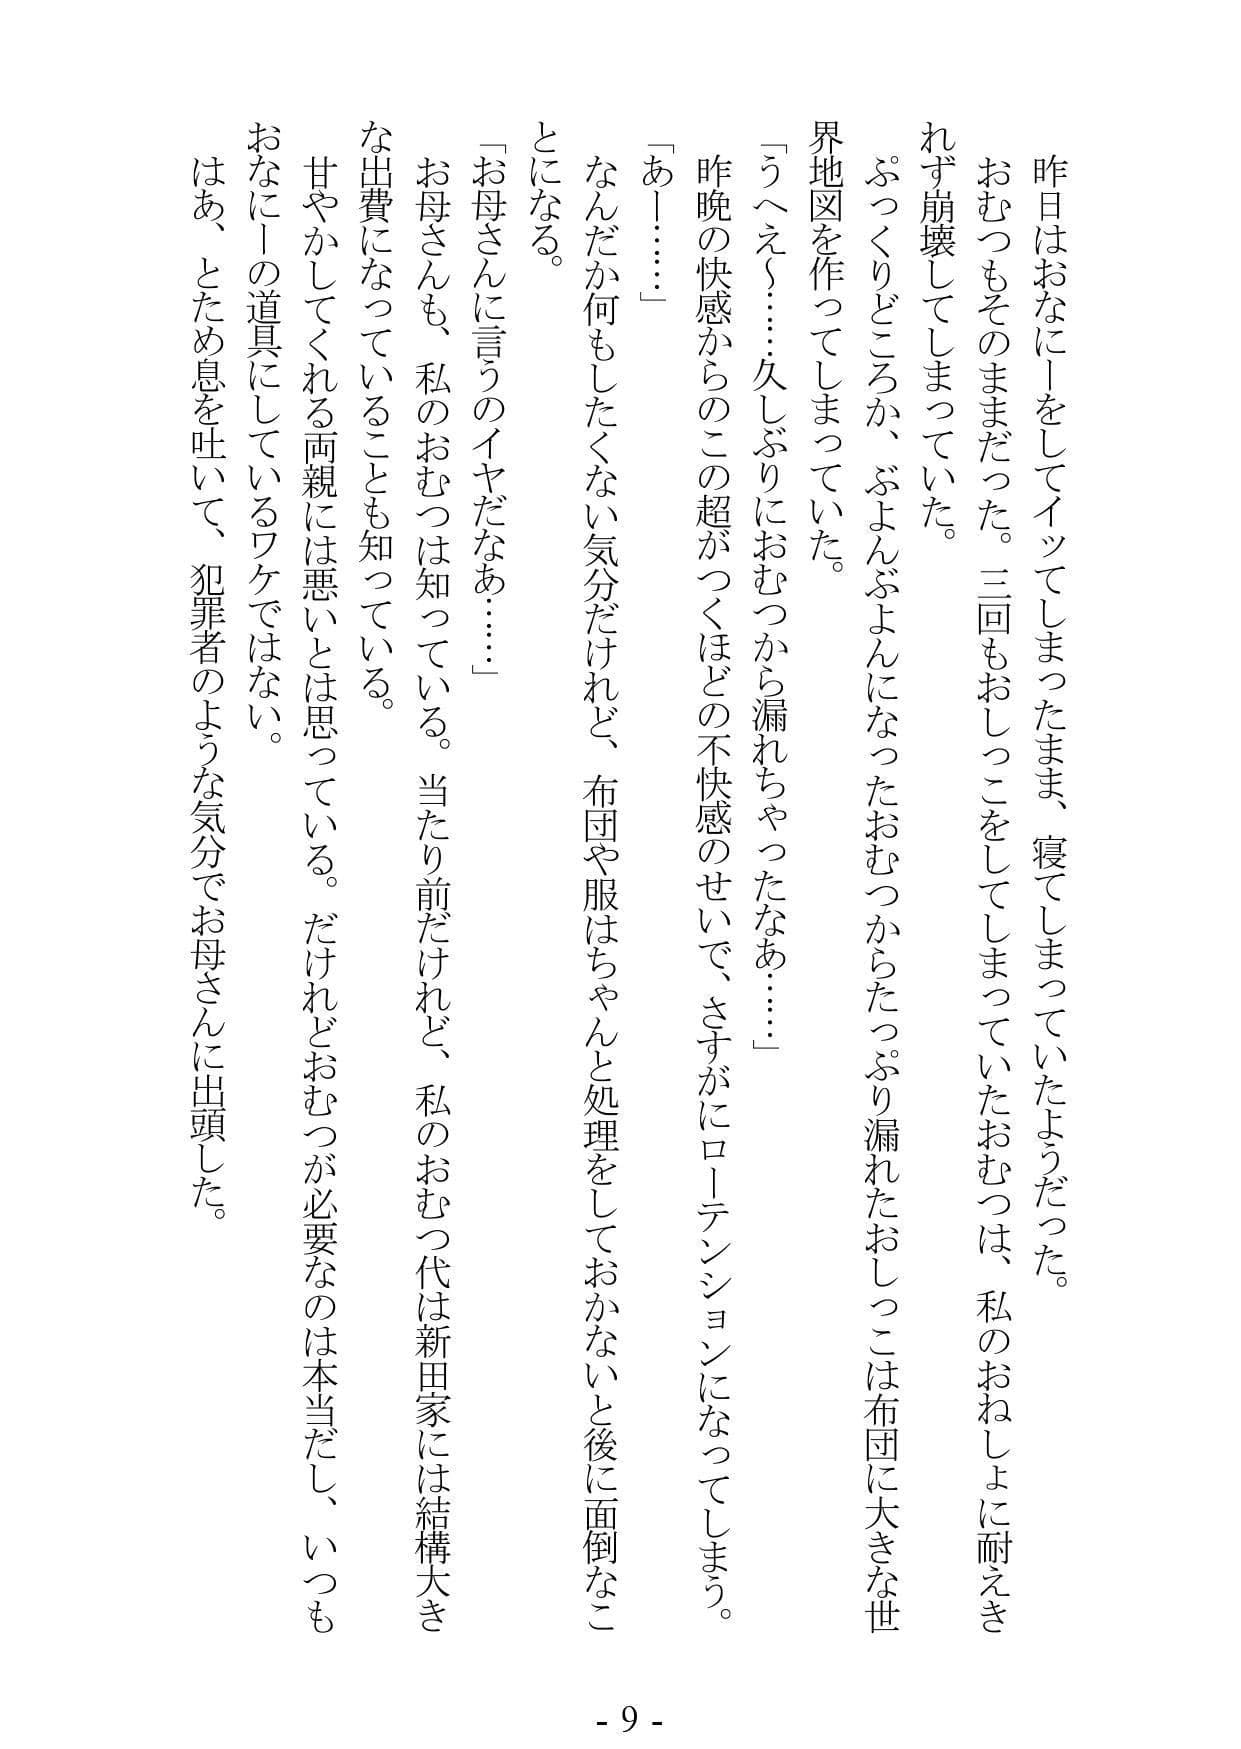 昨日はおなにーをしてイッてしまったまま、寝てしまっていたようだった。
おむつもそのままだった。三回もおしっこをしてしまっていたおむつは、私のおねしょに耐えき
れず崩壊してしまっていた。
ぷっくりどころか、ぶよんぶよんになったおむつからたっぷり漏れたおしっこは布団に大きな世
界地図を作ってしまっていた。
「うへえ～……久しぶりにおむつから漏れちゃったなあ……」
昨晩の快感からのこの超がつくほどの不快感のせいで、さすがにローテンションになってしまう。
「あー……」
なんだか何もしたくない気分だけれど、布団や服はちゃんと処理をしておかないと後に面倒なこ
とになる。
「お母さんに言うのイヤだなあ……」
お母さんも、私のおむつは知っている。当たり前だけれど、私のおむつ代は新田家には結構大き
な出費になっていることも知っている。
甘やかしてくれる両親には悪いとは思っている。だけれどおむつが必要なのは本当だし、いつも
おなにーの道具にしているワケではない。
はあ、とため息を吐いて、犯罪者のような気分でお母さんに出頭した。
- 9 -